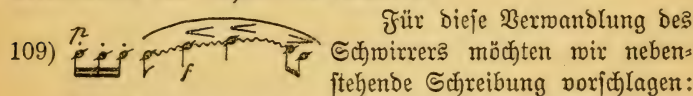 Für diese Verwandlung des
109) p f Schwirrers möchten wir neben=
stehende Schreibung vorschlagen: